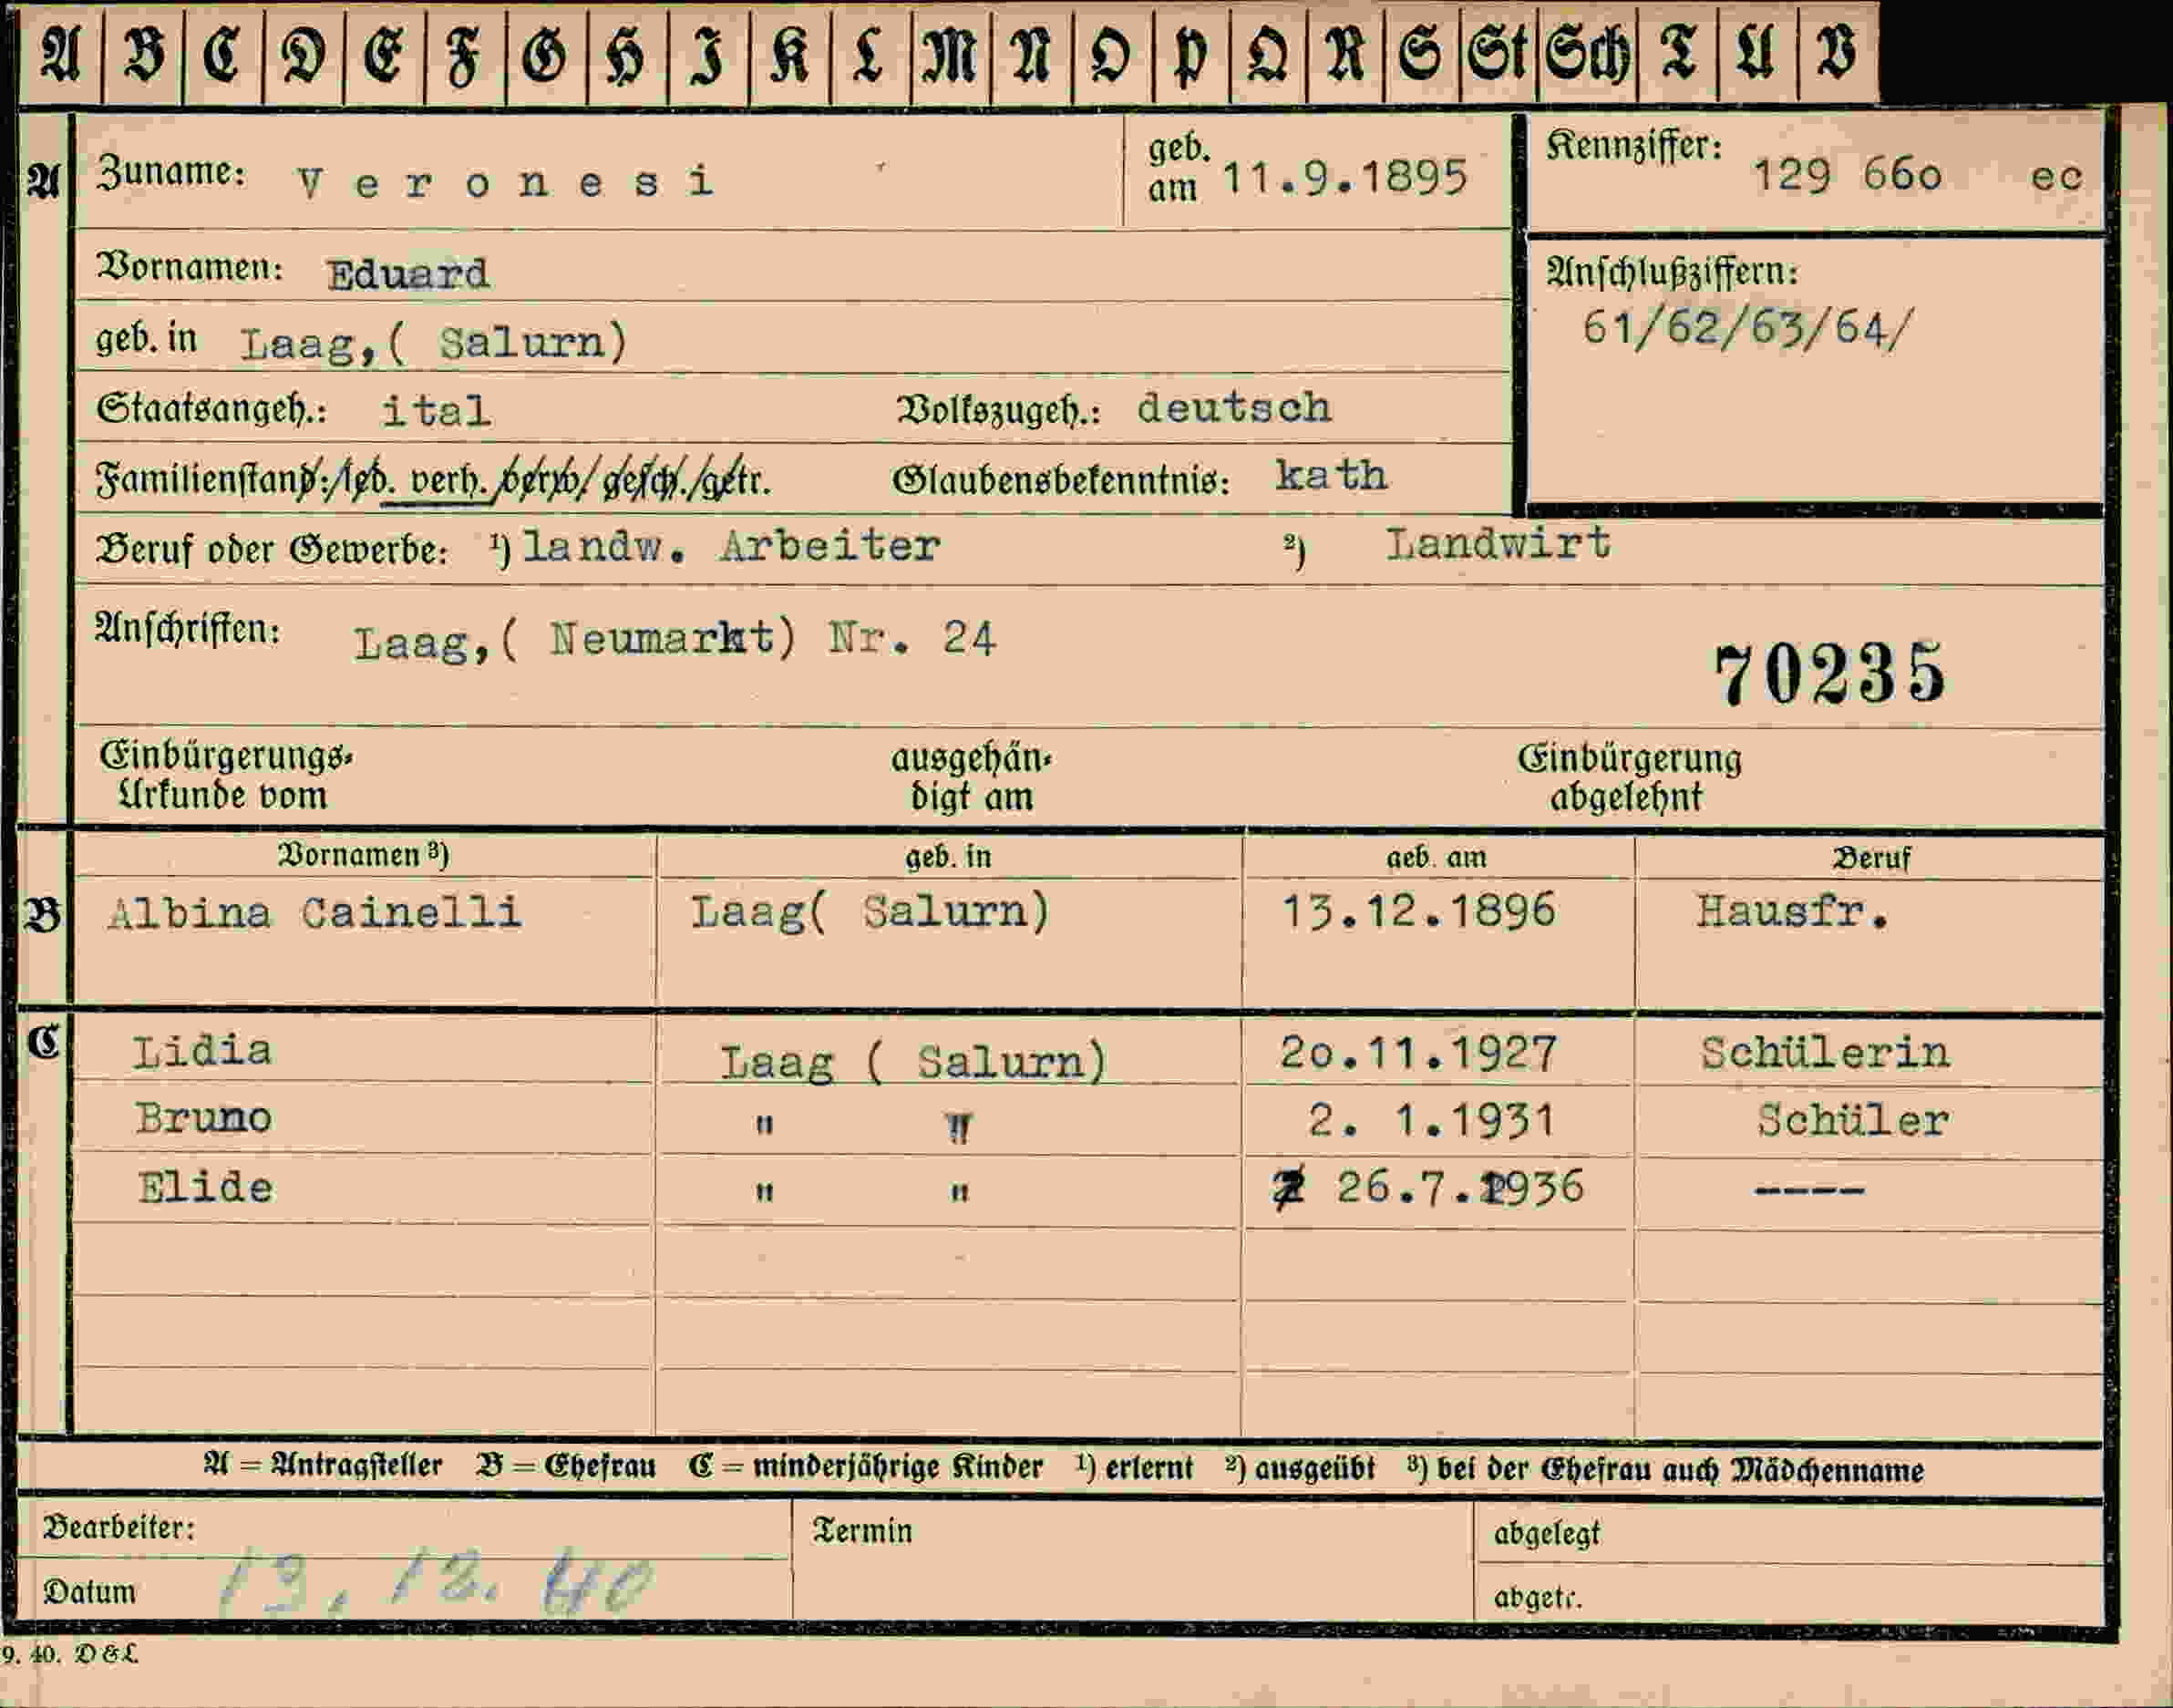 A B C D E F G H I K L M N O P Q R S St Sch T U V
A Zuname: Veronesi geb. am 11.9.1895 Kennziffer: 129 66o ec
Vornamen: Eduard Anschlußziffern:
geb. in Laag,( Salurn) 61/62/63/64/
Staatsangeh.: ital Volkszugeh.: deutsch
Familienstand: led. verh. verw. gesch. getr. Glaubensbekenntnis: kath
Beruf oder Gewerbe: ¹) landw. Arbeiter ²) Landwirt
Anschriften: Laag,( Neumarkt) Nr. 24
70235
Einbürgerungs- ausgehän- Einbürgerung
Urkunde vom digt am abgelehnt
Vornamen ³) geb. in geb. am Beruf
B Albina Cainelli Laag( Salurn) 13.12.1896 Hausfr.
C Lidia Laag ( Salurn) 2o.11.1927 Schülerin
Bruno " " 2. 1.1931 Schüler
Elide " " 26.7.1936 ----
A = Antragsteller B = Ehefrau C = minderjährige Kinder ¹) erlernt ²) ausgeübt ³) bei der Ehefrau auch Mädchenname
Bearbeiter: Termin abgelegt
Datum 13. 12. 40 abgetr.
9. 40. D & L